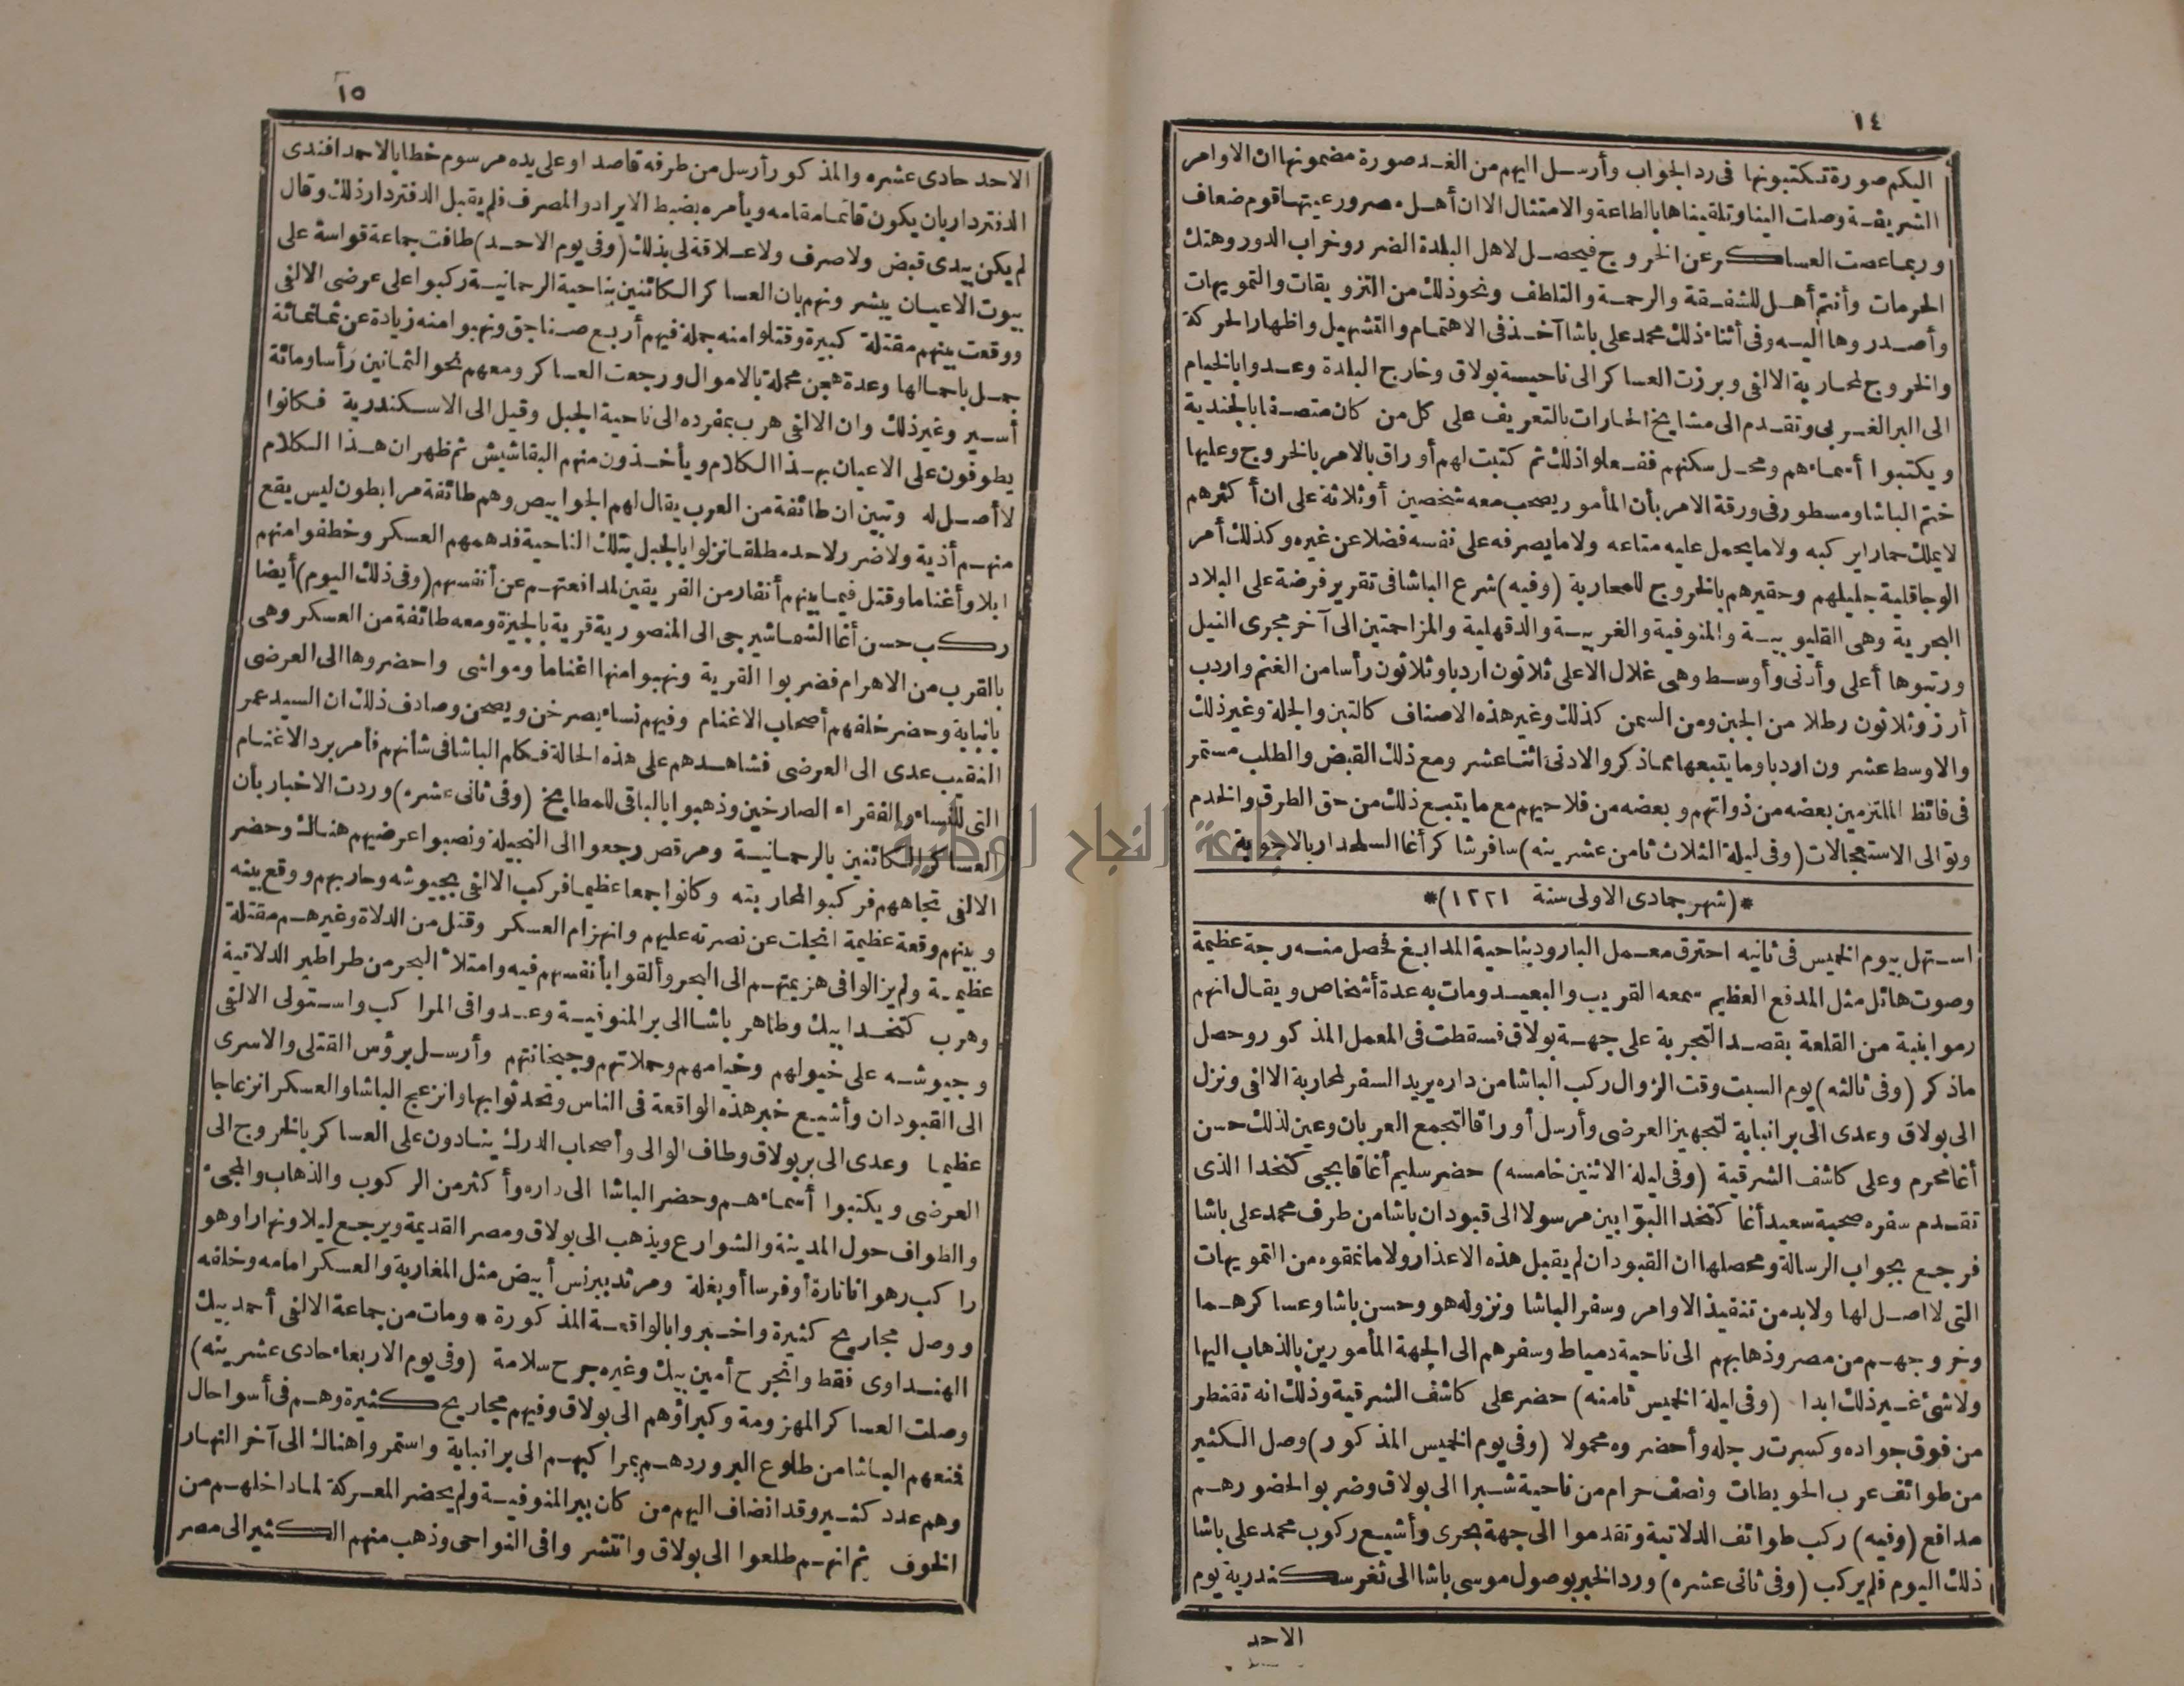 ١٤
اليكم صورة تكتبونها فى رد الجواب وأرسل اليهم من الغد صورة مضمونها ان الاوامر
الشريفة وصلت الينا وتلقيناها بالطاعة والامتثال الا ان أهل مصر ورعيتها قوم ضعاف
وربما عصت العساكر عن الخروج فيحصل لاهل البلدة الضرر وخراب الدور وهتك
الحرمات وأنتم أهل للشفقة والرحمة والتلطف ونحو ذلك من التزويقات والتمويهات
وأصدروها اليه وفى أثناء ذلك محمد على باشا آخذ فى الاهتمام والتشهيل واظهار الحركة
والخروج لمحاربة الالفى وبرزت العساكر الى ناحية بولاق وخارج البلدة وعدوا بالخيام
الى البر الغربى وتقدم الى مشايخ الحارات بالتعريف على كل من كان متصفا بالجندية
ويكتبوا أسماءهم ومحل سكنهم ففعلوا ذلك ثم كتبت لهم أوراق بالامر بالخروج وعليها
ختم الباشا ومسطور فى ورقة الامر بأن المأمور يصحب معه شخصين أو ثلاثة على ان أكثرهم
لا يملك حمارا يركبه ولا ما يحمل عليه متاعه ولا ما يصرفه على نفسه فضلا عن غيره وكذلك أمر
الوجاقلية جليلهم وحقيرهم بالخروج للمحاربة (وفيه) شرع الباشا فى تقرير فرضة على البلاد
البحرية وهى القليوبية والمنوفية والغربية والدقهلية والمزاحمتين الى آخر مجرى النيل
ورتبوها أعلى وأدنى وأوسط وهى غلال الاعلى ثلاثون اردبا وثلاثون رأسا من الغنم واردب
أرز وثلاثون رطلا من الجبن ومن السمن كذلك وغير هذه الاصناف كالتبن والجلة وغير ذلك
والاوسط عشرون اردبا وما يتبعها مما ذكر والادنى اثنا عشر ومع ذلك القبض والطلب مستمر
فى فائظ الملتزمين بعضه من ذواتهم وبعضه من فلاحيهم مع ما يتبع ذلك من حق الطرق والخدم
وتوالى الاستعجالات (وفى ليلة الثلاث ثامن عشرينه) سافر شاكر أغا السلحدار بالاجوبة
*(شهر جمادى الاولى سنة ١٢٢١)*
استهل بيوم الخميس فى ثانيه احترق معمل البارود بناحية المدابغ فحصل منه رجة عظيمة
وصوت هائل مثل المدفع العظيم سمعه القريب والبعيد ومات به عدة أشخاص ويقال انهم
رموا بنبة من القلعة بقصد التجربة على جهة بولاق فسقطت فى المعمل المذكور وحصل
ماذكر (وفى ثالثه) يوم السبت وقت الزوال ركب الباشا من داره يريد السفر لمحاربة الالفى ونزل
الى بولاق وعدى الى بر انبابة لتجهيز العرضى وأرسل أوراقا لتجمع العربان وعين لذلك حسن
أغا محرم وعلى كاشف الشرقية (وفى ليلة الاثنين خامسه) حضر سليم أغا قابجى كتخدا الذى
تقدم سفره صحبة سعيد أغا كتخدا البوّابين مرسولا الى قبودان باشا من طرف محمد على باشا
فرجع بجواب الرسالة ومحصلها ان القبودان لم يقبل هذه الاعذار ولا ما نمقوه من التمويهات
التى لا اصل لها ولا بد من تنفيذ الاوامر وسفر الباشا ونزوله هو وحسن باشا وعساكرهما
وخروجهم من مصر وذهابهم الى ناحية دمياط وسفرهم الى الجهة المأمورين بالذهاب اليها
ولا شئ غير ذلك ابدا (وفى ليلة الخميس ثامنه) حضر على كاشف الشرقية وذلك انه تقنطر
من فوق جواده وكسرت رجله وأحضروه محمولا (وفى يوم الخميس المذكور) وصل الكثير
من طوائف عرب الحويطات ونصف حرام من ناحية شبرا الى بولاق وضربوا لحضورهم
مدافع (وفيه) ركب طوائف الدلاتية وتقدموا الى جهة بحرى وأشيع ركوب محمد على باشا
ذلك اليوم فلم يركب (وفى ثانى عشره) ورد الخبر بوصول موسى باشا الى ثغر سكندرية يوم
الاحد
١٥
الاحد حادى عشره والمذكور أرسل من طرفه قاصدا وعلى يده مرسوم خطابا لاحمد افندى
الدفتردار بان يكون قائمًا مقامه ويأمره بضبط الايراد والمصرف فلم يقبل الدفتردار ذلك وقال
لم يكن بيدى قبض ولا صرف ولا علاقة لى بذلك (وفى يوم الاحد) طافت جماعة قواسة على
بيوت الاعيان يبشرونهم بان العساكر الكائنين بناحية الرحمانية ركبوا على عرضى الالفى
ووقعت بينهم مقتلة كبيرة وقتلوا منه جملة فيهم أربع صناجق ونهبوا منه زيادة عن ثمانمائة
جمل باحمالها وعدة هجن محملة بالاموال ورجعت العساكر ومعهم نحو الثمانين رأسا ومائة
أسير وغير ذلك وان الالفى هرب بمفرده الى ناحية الجبل وقيل الى الاسكندرية فكانوا
يطوفون على الاعيان بهذا الكلام ويأخذون منهم البقاشيش ثم ظهر ان هذا الكلام
لا أصل له وتبين ان طائفة من العرب يقال لهم الجوابيص وهم طائفة مرابطون ليس يقع
منهم أذية ولا ضرر لاحد مطلقا نزلوا بالجبل بتلك الناحية فدهمهم العسكر وخطفوا منهم
ابلا وأغناما وقتل فيما بينهم أنفار من الفريقين لمدافعتهم عن أنفسهم (وفى ذلك اليوم) أيضا
ركب حسن أغا الشماشيرجى الى المنصورية قرية بالجيزة ومعه طائفة من العسكر وهى
بالقرب من الاهرام فضربوا القرية ونهبوا منها اغناما ومواشى واحضروها الى العرضى
بانبابة وحضر خلفهم أصحاب الاغنام وفيهم نساء يصرخن ويصحن وصادف ذلك ان السيد عمر
النقيب عدى الى العرضى فشاهدهم على هذه الحالة فكلم الباشا فى شأنهم فأمر برد الاغنام
التى للنساء والفقراء الصارخين وذهبوا بالباقى للمطابخ (وفى ثانى عشره) وردت الاخبار بأن
العساكر الكائنين بالرحمانية ومرقص رجعوا الى النجيلة ونصبوا عرضيهم هناك وحضر
الالفى تجاههم فركبوا لمحاربته وكانوا جمعا عظيما فركب الالفى بجيوشه وحاربهم ووقع بينه
وبينهم وقعة عظيمة انجلت عن نصرته عليهم وانهزام العسكر وقتل من الدلاة وغيرهم مقتلة
عظيمة ولم يزالوا فى هزيمتهم الى البحر وألقوا بأنفسهم فيه وامتلأ البحر من طراطير الدلاتية
وهرب كتخدا بيك وطاهر باشا الى بر المنوفية وعدوا فى المراكب واستولى الالفى
وجيوشه على خيولهم وخيامهم وحملاتهم وجبخانتهم وأرسل برؤس القتلى والاسرى
الى القبودان وأشيع خبر هذه الواقعة فى الناس وتحدثوا بها وانزعج الباشا والعسكر انزعاجا
عظيما وعدى الى بر بولاق وطاف الوالى وأصحاب الدرك ينادون على العساكر بالخروج الى
العرضى ويكتبوا أسماءهم وحضر الباشا الى داره وأكثر من الركوب والذهاب والمجىء
والطواف حول المدينة والشوارع ويذهب الى بولاق ومصر القديمة ويرجع ليلا ونهارا وهو
راكب رهوانا تارة أو فرسا أو بغلة ومرتد ببرنس أبيض مثل المغاربة والعسكر امامه وخلفه
ووصل مجاريح كثيرة واخبروا بالواقعة المذكورة * ومات من جماعة الالفى أحمد بيك
الهنداوى فقط وانجرح أمين بيك وغيره جرح سلامة (وفى يوم الاربعاء حادى عشرينه)
وصلت العساكر المهزومة وكبراؤهم الى بولاق وفيهم مجاريح كثيرة وهم فى أسوا حال
فمنعهم الباشا من طلوع البر وردهم بمراكبهم الى بر انبابة واستمروا هناك الى آخر النهار
وهم عدد كثير وقد انضاف اليهم من كان ببر المنوفية ولم يحضر المعركة لما داخلهم من
الخوف ثم انهم طلعوا الى بولاق وانتشروا فى النواحى وذهب منهم الكثير الى مصر
جامعة النجاح الوطنية